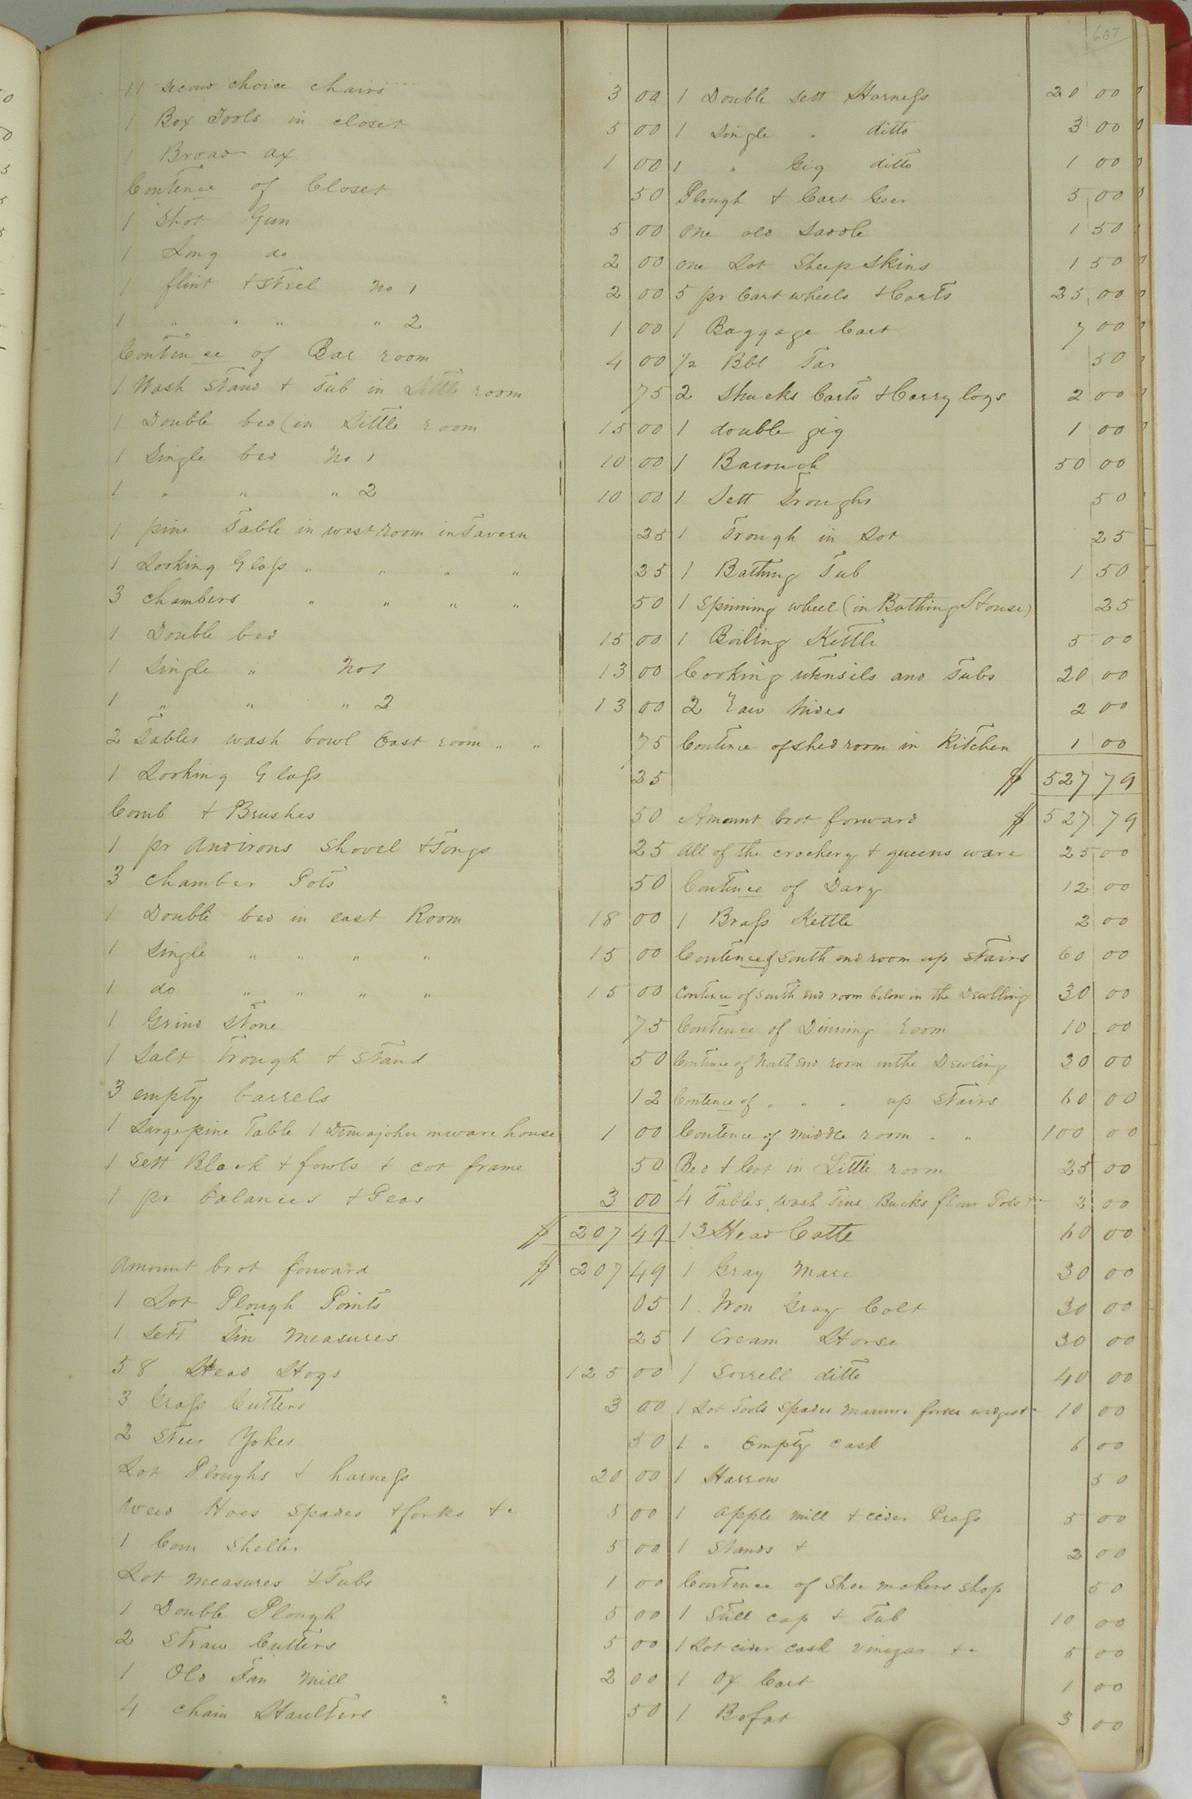 607
11 second choice chairs 3 00
1 Box Tools in closet 5 00
1 Broad ax 1 00
Contence of Closet 50
1 Shot Gun 5 00
1 Long do 2 00
1 flint & Steel No 1 2 00
1 " " " " 2 1 00
Contence of Bar room 4 00
1 Wash Stand & Tub in Little room 75
1 Double bed (in Little room 15 00
1 Single bed No 1 10 00
1 " " " 2 10 00
1 pine Table in west room in Tavern 25
1 Looking Glass " " " " 25
3 chambers " " " " 50
1 Double bed 15 00
1 Single " No 1 13 00
1 " " " 2 13 00
2 Tables wash bowl East room " " 75
1 Looking Glass 25
Comb & Brushes 50
1 pr Andirons Shovel & Tongs 25
3 Chamber Pots 50
1 Double bed in east Room 18 00
1 Single " " " " 15 00
1 do " " " " 15 00
1 Grind Stone 75
1 Salt Trough & Stand 50
3 empty barrels 12
1 Large pine Table 1 Demajohn in ware house 1 00
1 Sett Block & fowls & cot frame 50
1 pr balances & Peas 3 00
$ 207 49
Amount brot forward $ 207 49
1 Lot Plough Points 05
1 Sett Tin Measures 25
58 Head Hogs 125 00
3 Grass Cutters 3 00
2 Steer Yokes 50
Lot Ploughs & harness 20 00
Weed Hoes Spades & forks &c 5 00
1 Corn Sheller 5 00
Lot measures & Tubs 1 00
1 Double Plough 5 00
2 Straw Cutters 5 00
1 Old Fan Mill 2 00
4 chain Haulters 50
1 Double Sett Harness 20 00
1 Single " ditto 3 00
1 " Gig ditto 1 00
Plough & Cart Geer 5 00
One old Saddle 1 50
One Lot Sheep Skins 1 50
5 pr Cart wheels & Carts 25 00
1 Baggage Cart 7 00
1/2 Bbl Tar 50
2 Shucks Carts & Carry logs 2 00
1 double gig 1 00
1 Barouch 50 00
1 Sett Troughs 50
1 Trough in Lot 25
1 Bathing Tub 1 50
1 Spinning wheel (in Bathing House) 25
1 Boiling Kettle 5 00
Cooking utensils and Tubs 20 00
2 Raw hides 2 00
Contence of shed room in Kitchen 1 00
$ 527 79
Amount brot forward $ 527 79
All of the crockery & queens ware 25 00
Contence of Dary 12 00
1 Brass Kettle 2 00
Contence of South end room up Stairs 60 00
Contence of South end room below in the Dwelling 30 00
Contence of Dinning room 10 00
Contence of North end room in the Dwelling 30 00
Contence of " " " up Stairs 60 00
Contence of middle room " " 100 00
Bed & Cot in Little room 25 00
4 Tables, wash Tins Bucks flour Pots &c 3 00
13 Head Cattle 60 00
1 Gray Mare 30 00
1 Iron Gray Colt 30 00
1 Cream Horse 30 00
1 Sorrell ditto 40 00
1 Lot Tools Spades manure forks wedges &c 10 00
1 " Empty cask 6 00
1 Harrow 50
1 apple mill & cider Press 5 00
1 Stands & 2 00
Contence of Shoe makers shop 50
1 Still cap & Tub 10 00
1 Lot cider cask vinegar &c 5 00
1 Ox Cart 1 00
1 Bofat 3 00